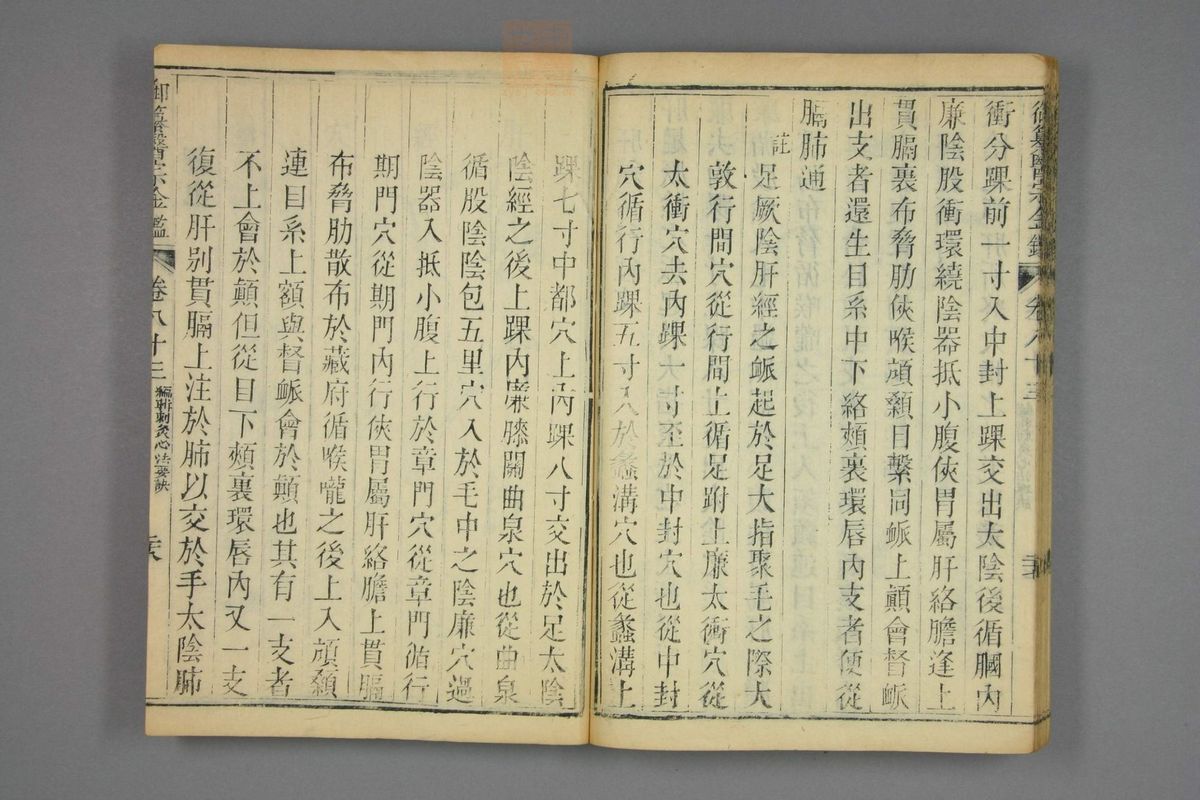 御纂醫宗金鑑 卷八十三
衝分踝前一寸入中封上踝交出太陰後循膕內
廉陰股衝環繞陰器抵小腹俠胃屬肝絡膽逢上
貫膈裏布脅肋俠喉頏顙目繫同脈上巔會督脈
出支者還生目系中下絡頰裏環唇內支者便從
膈肺通
註
足厥陰肝經之脈起於足大指聚毛之際大
敦行間穴從行間上循足跗上廉太衝穴從
太衝穴去內踝一寸至於中封穴也從中封
穴循行內踝五寸入於蠡溝穴也從蠡溝上
踝七寸中都穴上內踝八寸交出於足太陰
陰經之後上踝內廉膝關曲泉穴也從曲泉
循股陰陰包五里穴入於毛中之陰廉穴過
陰器入抵小腹上行於章門穴從章門循行
期門穴從期門內行俠胃屬肝絡膽上貫膈
布脅肋散布於藏府循喉嚨之後上入頏顙
連目系上額與督脈會於顛也其有一支者
不上會於顛但從目下頰裏環唇內又一支
復從肝別貫膈上注於肺以交於手太陰肺
御纂醫宗金鑑 卷八十三 編輯刺灸心法要訣